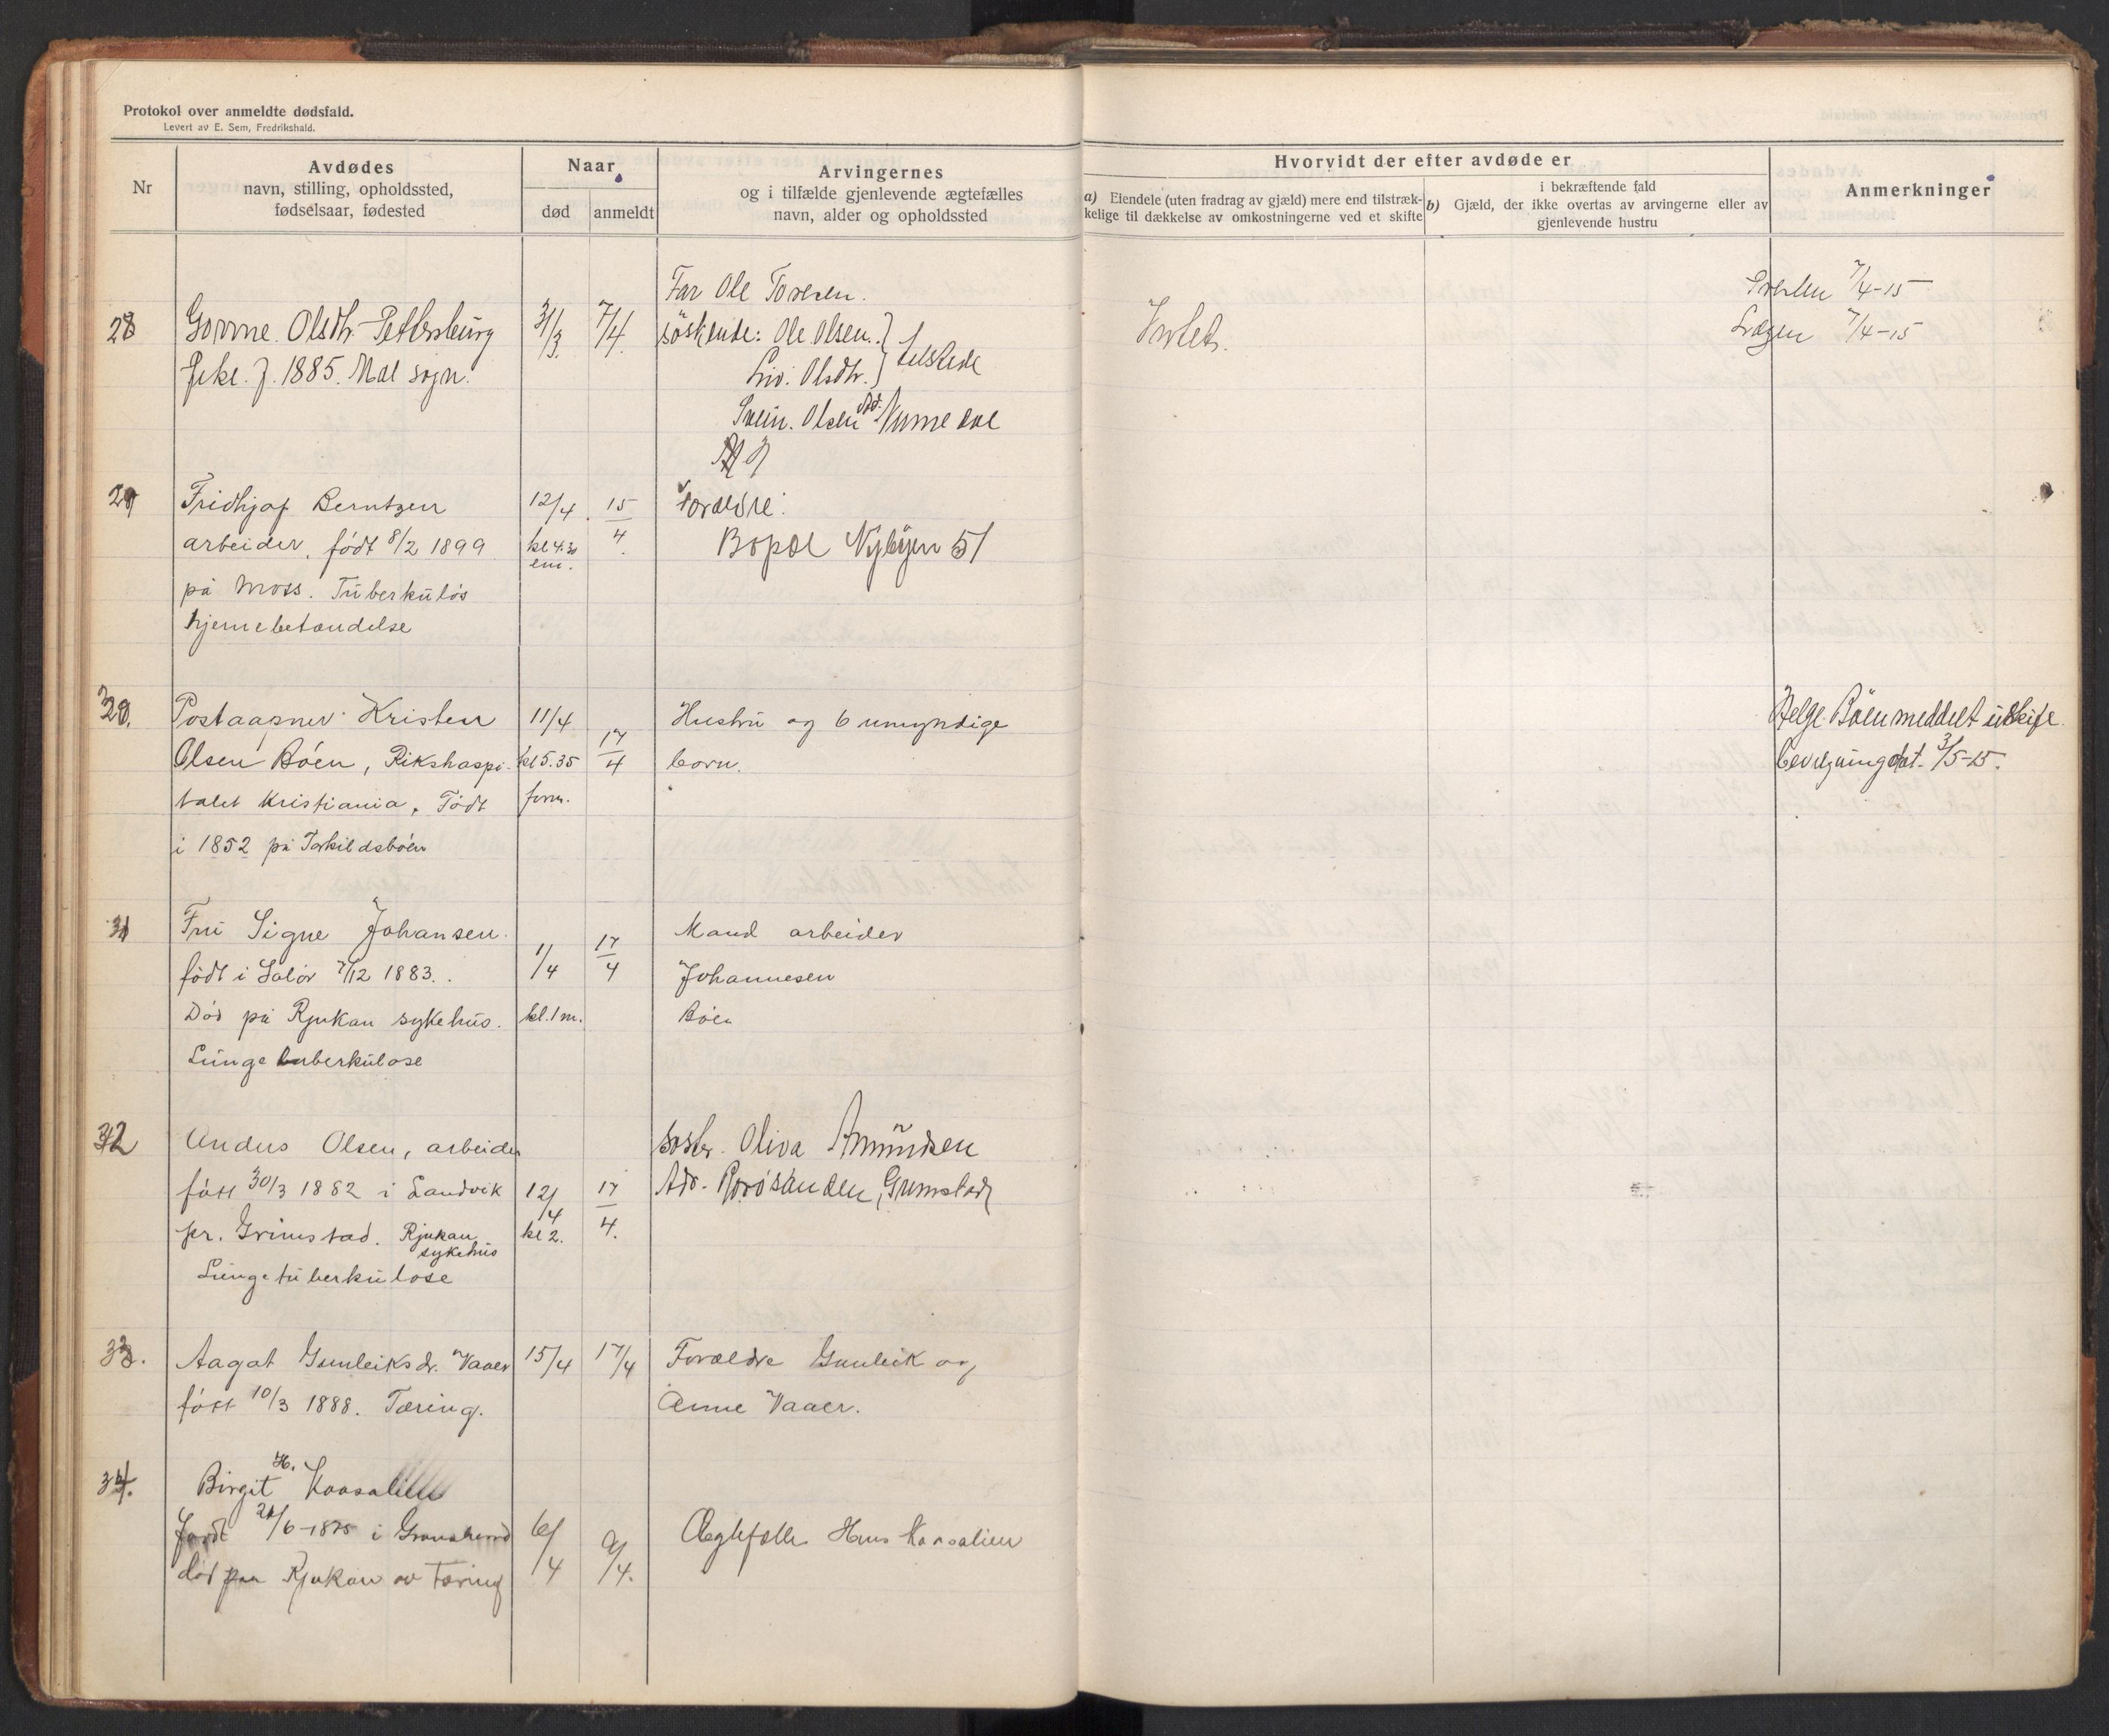 Protokol over anmeldte dødsfald.
Levert av E. Sem, Fredrikshald.
Nr
Avdødes
navn, stilling, opholdssted,
fødselsaar, fødested
Naar
død
anmeldt
Arvingernes
og i tilfælde gjenlevende ægtefælles
navn, alder og opholdssted
Hvorvidt der efter avdøde er
a) Eiendele (uten fradrag av gjæld) mere end tilstræk-
kelige til dækkelse av omkostningerne ved et skifte
i bekræftende fald
b) Gjæld, der ikke overtas av arvingerne eller av
gjenlevende hustru
Anmerkninger
28
Olsdtr.
f. 1885. Mæl sogn.
31/3.
7/4.
Far Ole Toresen.
søskende: Ole Olsen.
Liv. Olsdtr.
Svein. Olsen
Intet.
7/4-15
7/4-15
29
Fridhjof Berntzen
arbeider, født 8/2 1899
på Moss. Tuberkuløs
hjernebetændelse
12/4
kl 4.30
em.
15/4.
Forældre:
Bopæl Nybyen 51
30.
Postaapner Kristen
Olsen Bøen, Rikshospi-
talet Kristiania, Født
i 1852 på Torkildsbøen
11/4
kl 5.35
form.
17/4
Hustru og 6 umyndige
børn.
Helge Bøen meddelt uskifte
bevilgning dat. 3/5-15.
31
Fru Signe Johansen.
født i Solør 7/12 1883.
Død på Rjukan sykehus.
Lungetuberkulose
11/4
kl. 1 m.
17/4
Mand arbeider
Johannesen
Bøen
32
Anders Olsen, arbeider
født 30/3 1882 i Landvik
pr. Grimstad. Rjukan
sykehus
Lungetuberkulose
12/4
kl 2.
17/4.
søster. Oliva Amundsen
Adr. Grimstad
33.
Aagot Gunleiksdr. Vaaer
født 10/3 1888. Tæring.
15/4
17/4
Forældre Gunleik og
Anne Vaaer.
34.
Birgit H. Kaasalien
født /6-1875 i Gransherred
død paa Rjukan av Tæring
6/4
9/4.
Ægtefælle Hans Kaasalien